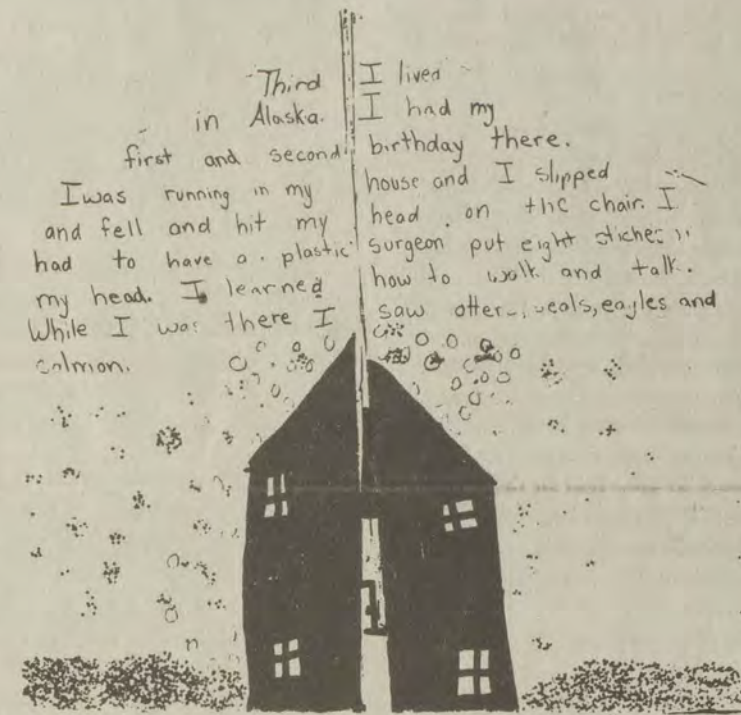 Third I lived
in Alaska. I had my
first and second birthday there.
I was running in my house and I slipped
and fell and hit my head on the chair. I
had to have a plastic surgeon put eight stiches in
my head. I learned how to walk and talk.
While I was there I saw otters, seals, eagles and
salmon.